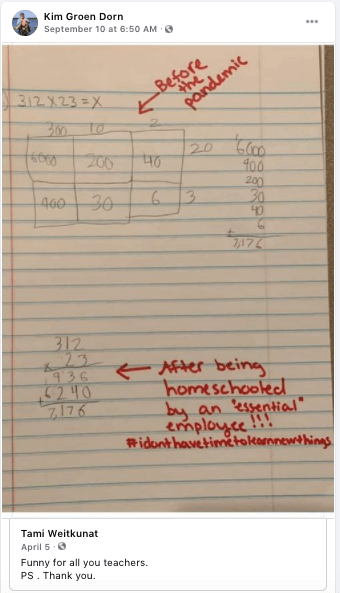 Kim Groen Dorn
September 10 at 6:50 AM ·
Before
the
pandemic
312 x 23 = x
300 10 2
6000 200 40 20
900 30 6 3
6000
900
200
30
40
6
+
7,176
312
x 23
936
+6240
7,176
← After being
homeschooled
by an "essential"
employee!!!
#idonthavetimetolearnnewthings
Tami Weitkunat
April 5 ·
Funny for all you teachers.
PS . Thank you.